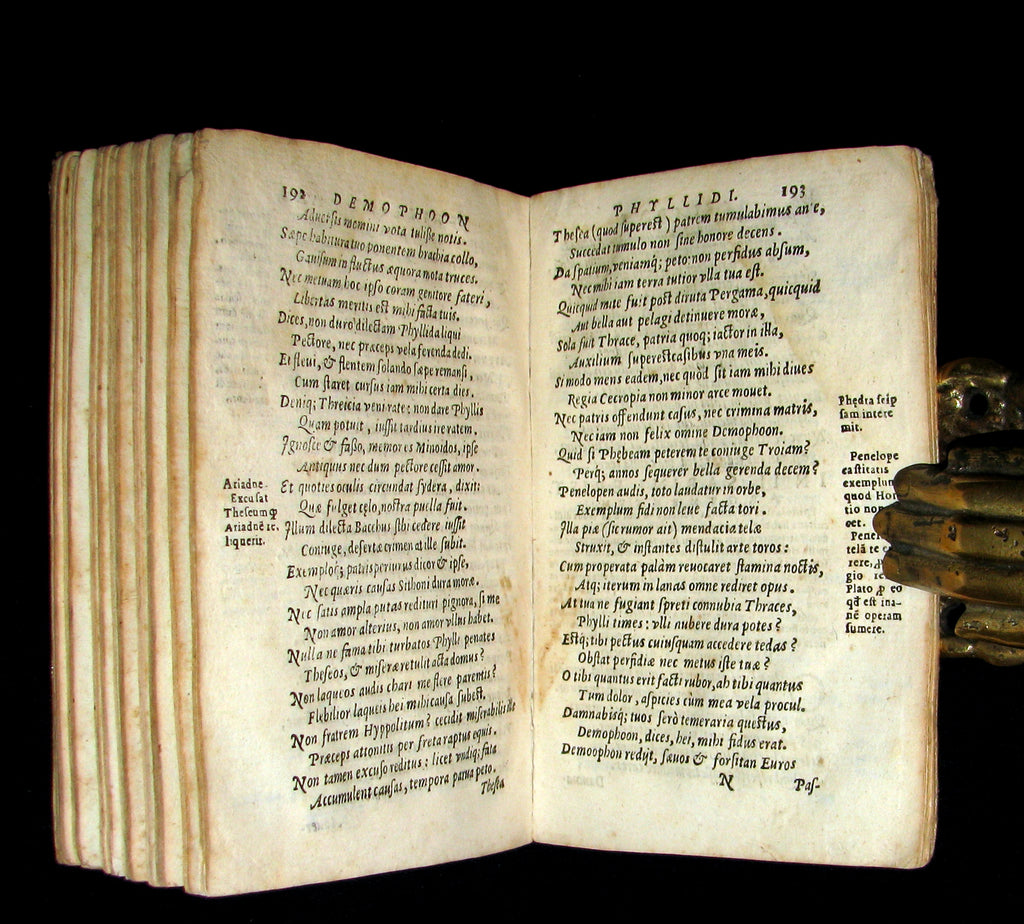 192 DEMOPHOON
Aduersis memini vota tulisse notis.
Sæpe habitura tuo ponentem brachia collo,
Gauisum in fluctus æquora mota truces.
Nec metuam hoc ipso coram genitore fateri,
Libertas meritis est mihi facta tuis.
Dices, non duro dilectam Phyllida liqui
Pectore, nec præceps vela ferenda dedi.
Et fleui, & flentem solando sæpe remansi,
Cum staret cursus iam mihi certa dies.
Deniq; Threicia veni rate: non dare Phyllis
Quam potuit, iussit tardius ire ratem.
Ignosce & fasso, memor es Minoidos, ipse
Antiquus nec dum pectore cessit amor.
Et quoties oculis circundat sydera, dixit:
Quæ fulget cęlo, nostra puella fuit.
Illum dilecta Bacchus sibi cedere iussit
Coniuge, desertæ crimen at ille subit.
Exemplo; patris periurus dicor & ipse,
Nec quæris causas Sithoni dura moræ.
Nec satis ampla putas redituri pignora, si me
Non amor alterius, non amor vllus habet.
Nulla ne fama tibi turbatos Phylli penates
Theseos, & miseræ retulit acta domus?
Non laqueos audis chari me flere parentis?
Flebilior laqueis hei mihi causa subest.
Non fratrem Hyppolitum? cecidit miserabilis ille
Præceps attonitis per freta raptus equis.
Non tamen excuso reditus: licet vndiq; fata
Accumulent causas, tempora parua peto.
Thesea
Ariadne.
Excusat
Theseum ꝙ
Ariadnē re.
liquerit.
PHYLLIDI. 193
Thesea (quod superest) patrem tumulabimus an e,
Succedat tumulo non sine honore decens.
Da spatium, veniamq; peto: non perfidus absum,
Nec mihi iam terra tutior vlla tua est.
Quicquid mite fuit post diruta Pergama, quicquid
Aut bella aut pelagi detinuere moræ,
Sola fuit Thrace, patria quoq; iactor in illa,
Auxilium superest casibus vna meis.
Si modo mens eadem, nec quòd sit iam mihi diues
Regia Cecropia non minor arce mouet.
Nec patris offendunt casus, nec crimina matris,
Nec iam non felix omine Demophoon.
Quid si Phębeam peterem te coniuge Troiam?
Perq; annos sequerer bella gerenda decem?
Penelopen audis, toto laudatur in orbe,
Exemplum fidi non leue facta tori.
Illa piæ (sic rumor ait) mendacia telæ
Struxit, & instantes distulit arte toros:
Cum properata palàm reuocaret stamina noctis,
Atq; iterum in lanas omne rediret opus.
At tua ne fugiant spreti connubia Thraces,
Phylli times: vlli nubere dura potes?
Estq; tibi pectus cuiusquam accedere tedas?
Obstat perfidiæ nec metus iste tuæ?
O tibi quantus erit facti rubor, ah tibi quantus
Tum dolor, aspicies cùm mea vela procul.
Damnabisq; tuos serò temeraria questus,
Demophoon, dices, hei, mihi fidus erat.
Demoophon redijt, sæuos & forsitan Euros
N Pas-
Phędra seip
sam intere
mit.
Penelope
castitatis
exemplum
quod Hor
tio non
oet.
Penel
telā te
rere,
gio
Plato ꝓ eo
qđ est ina-
nē operam
sumere.